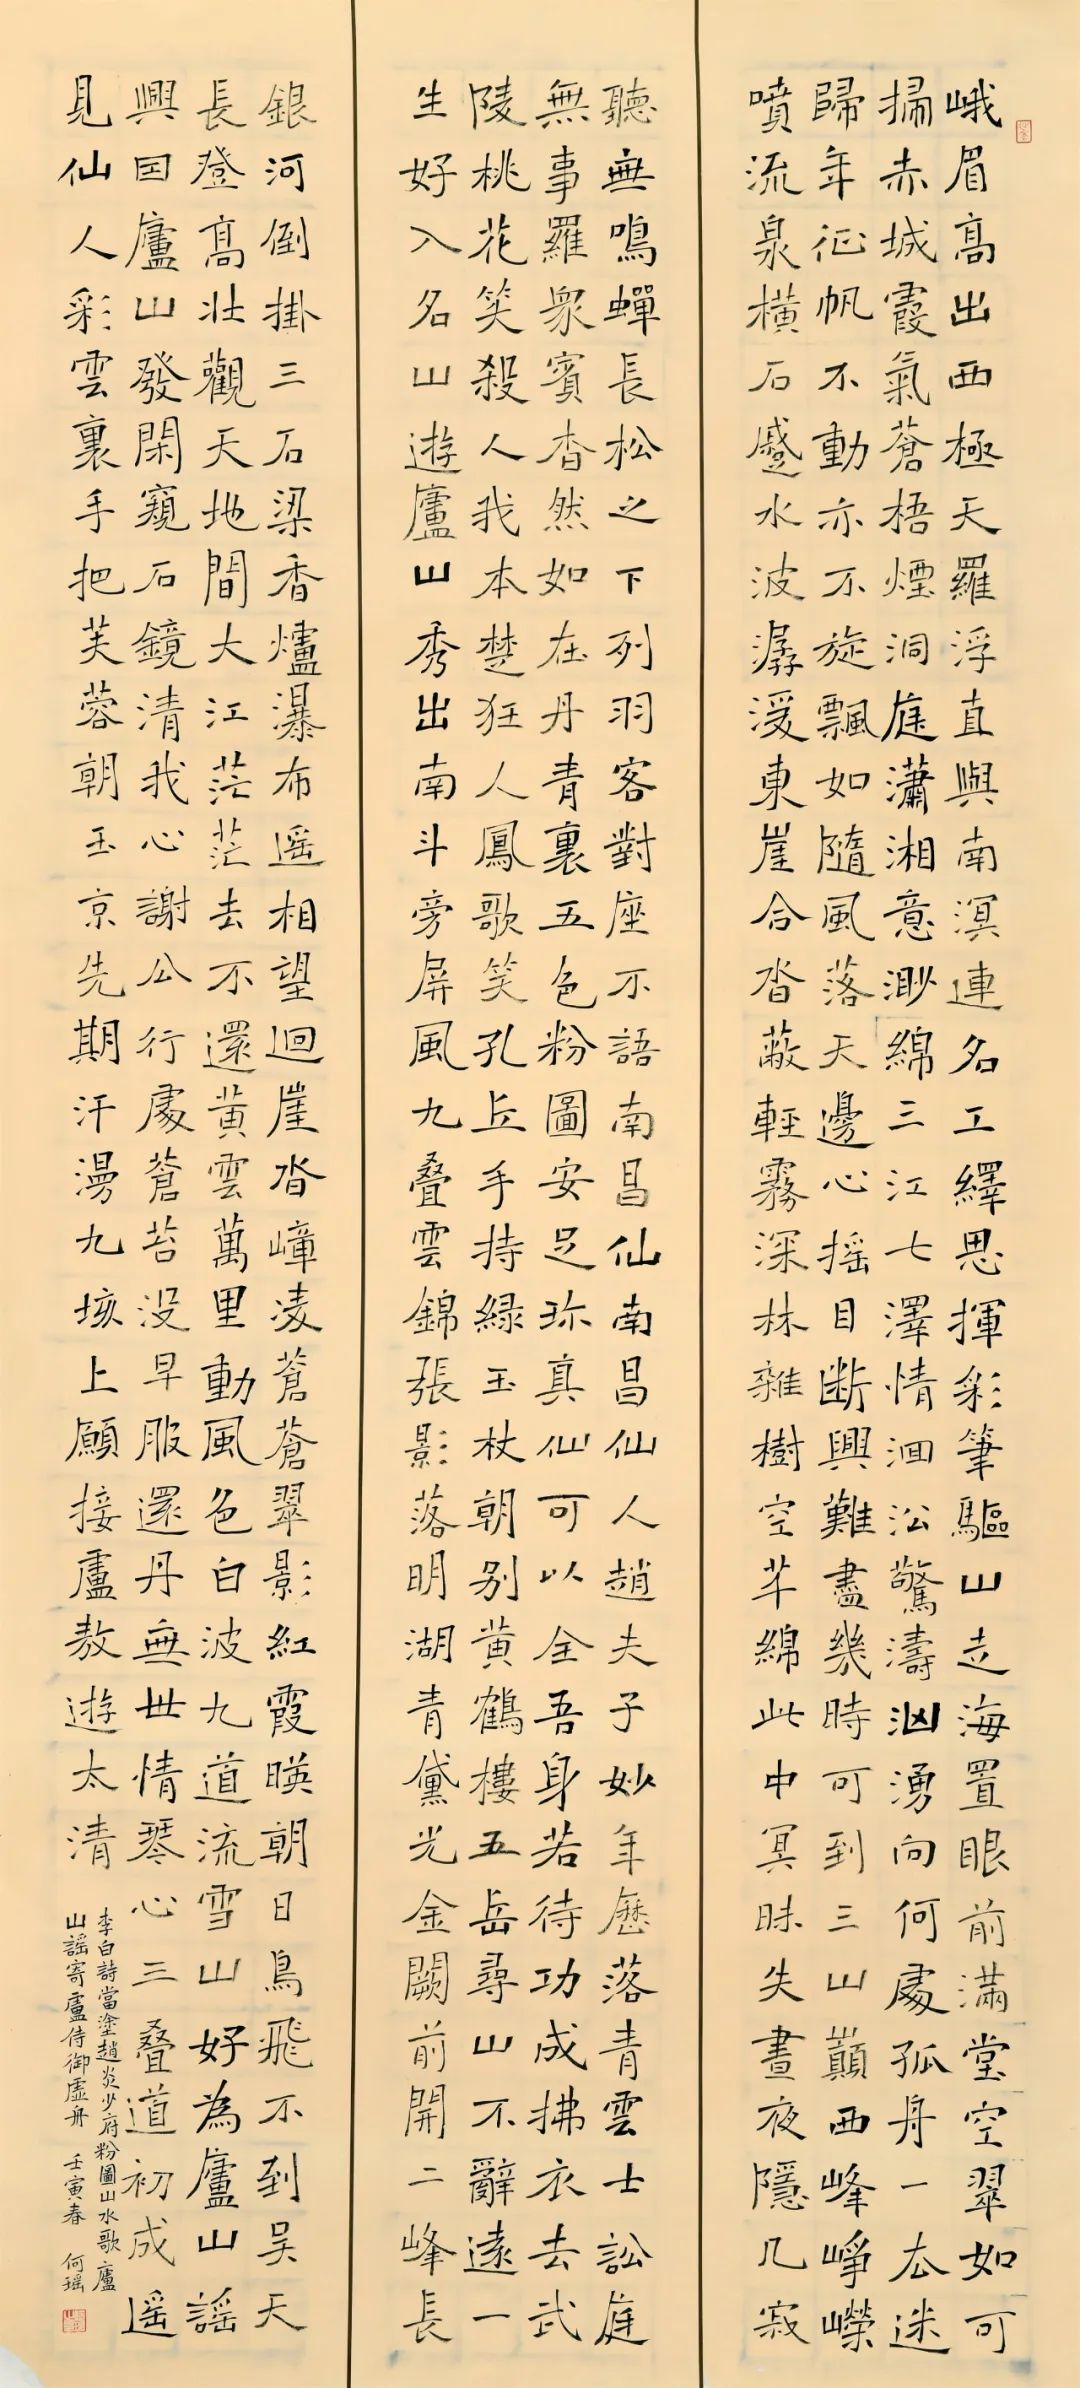 峨眉高出西極天羅浮直與南溟連名工繹思揮彩筆驅山走海置眼前滿堂空翠如可
掃赤城霞氣蒼梧煙洞庭瀟湘意渺綿三江七澤情洄沿驚濤汹湧向何處孤舟一去迷
歸年征帆不動亦不旋飄如隨風落天邊心摇目断興難盡幾時可到三山巔西峰崢嶸
噴流泉橫石蹙水波潺湲東崖合沓蔽輕霧深林雜樹空芊綿此中冥昧失晝夜隱几寂
聽無鳴蟬長松之下列羽客對座不語南昌仙南昌仙人趙夫子妙年歷落青雲士訟庭
無事羅衆賓杳然如在丹青裏五色粉圖安足珍真仙可以全吾身若待功成拂衣去武
陵桃花笑殺人我本楚狂人鳳歌笑孔丘手持緑玉杖朝别黄鶴樓五岳尋山不辭遠一
生好入名山遊廬山秀出南斗旁屏風九叠雲錦張影落明湖青黛光金闕前開二峰長
銀河倒掛三石梁香爐瀑布遥相望迴崖沓嶂凌蒼蒼翠影紅霞暎朝日鳥飛不到吴天
長登高壯觀天地間大江茫茫去不還黄雲萬里動風色白波九道流雪山好為廬山謡
興因廬山發閑窺石鏡清我心謝公行處蒼苔没早服還丹無世情琴心三叠道初成遥
見仙人彩雲裏手把芙蓉朝玉京先期汗漫九垓上願接盧敖遊太清
李白詩當塗趙炎少府粉圖山水歌廬
山謡寄盧侍御虚舟 壬寅春 何瑶